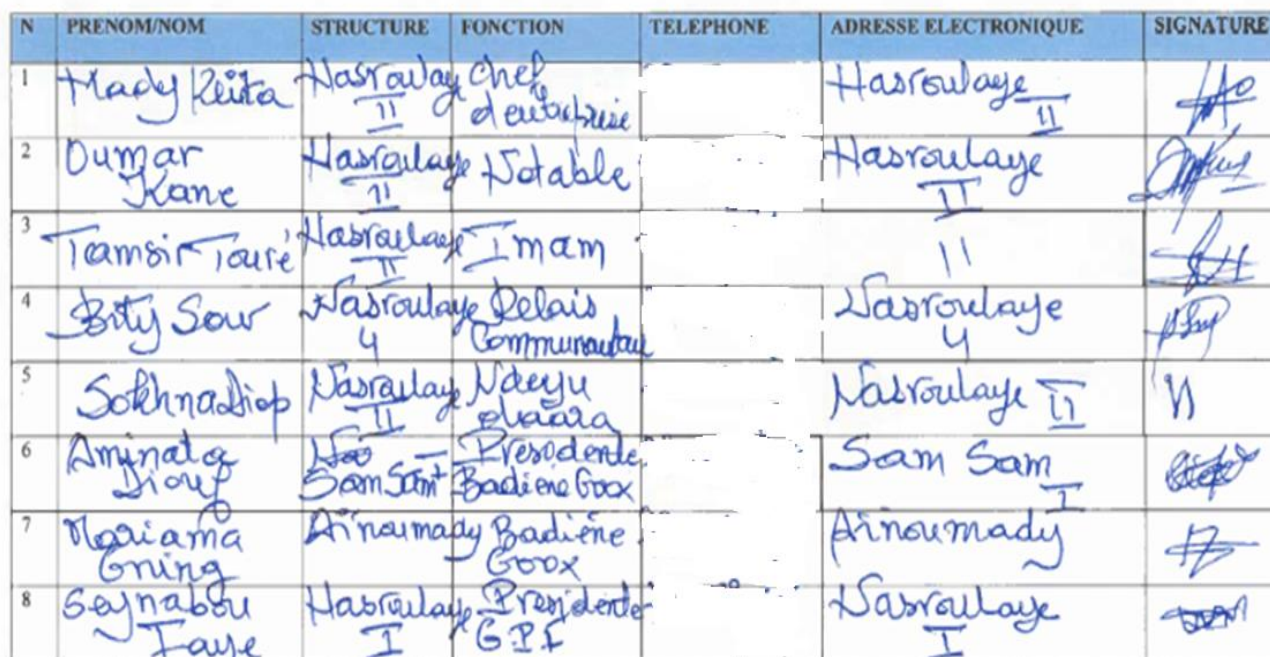 N PRENOM/NOM STRUCTURE FONCTION TELEPHONE ADRESSE ELECTRONIQUE SIGNATURE
1 Mady Keita Hasroulaye II Chef d'entreprise Hasroulaye II
2 Oumar Kane Hasroulaye II Notable Hasroulaye II
3 Tamsir Touré Hasroulaye II Imam 11
4 Bity Sow Nasroulaye 4 Relais Communautaire Nasroulaye 4
5 Sokhna Diop Nasroulaye II Ndeyu daara Nasroulaye II
6 Aminata Diouf Sam Sam I Presidente Badiene Goox Sam Sam I
7 Mariama Gning Aïnoumady Badiène Goox Aïnoumady
8 Seynabou Faye Hasroulaye I Presidente G.P.F Nasroulaye I